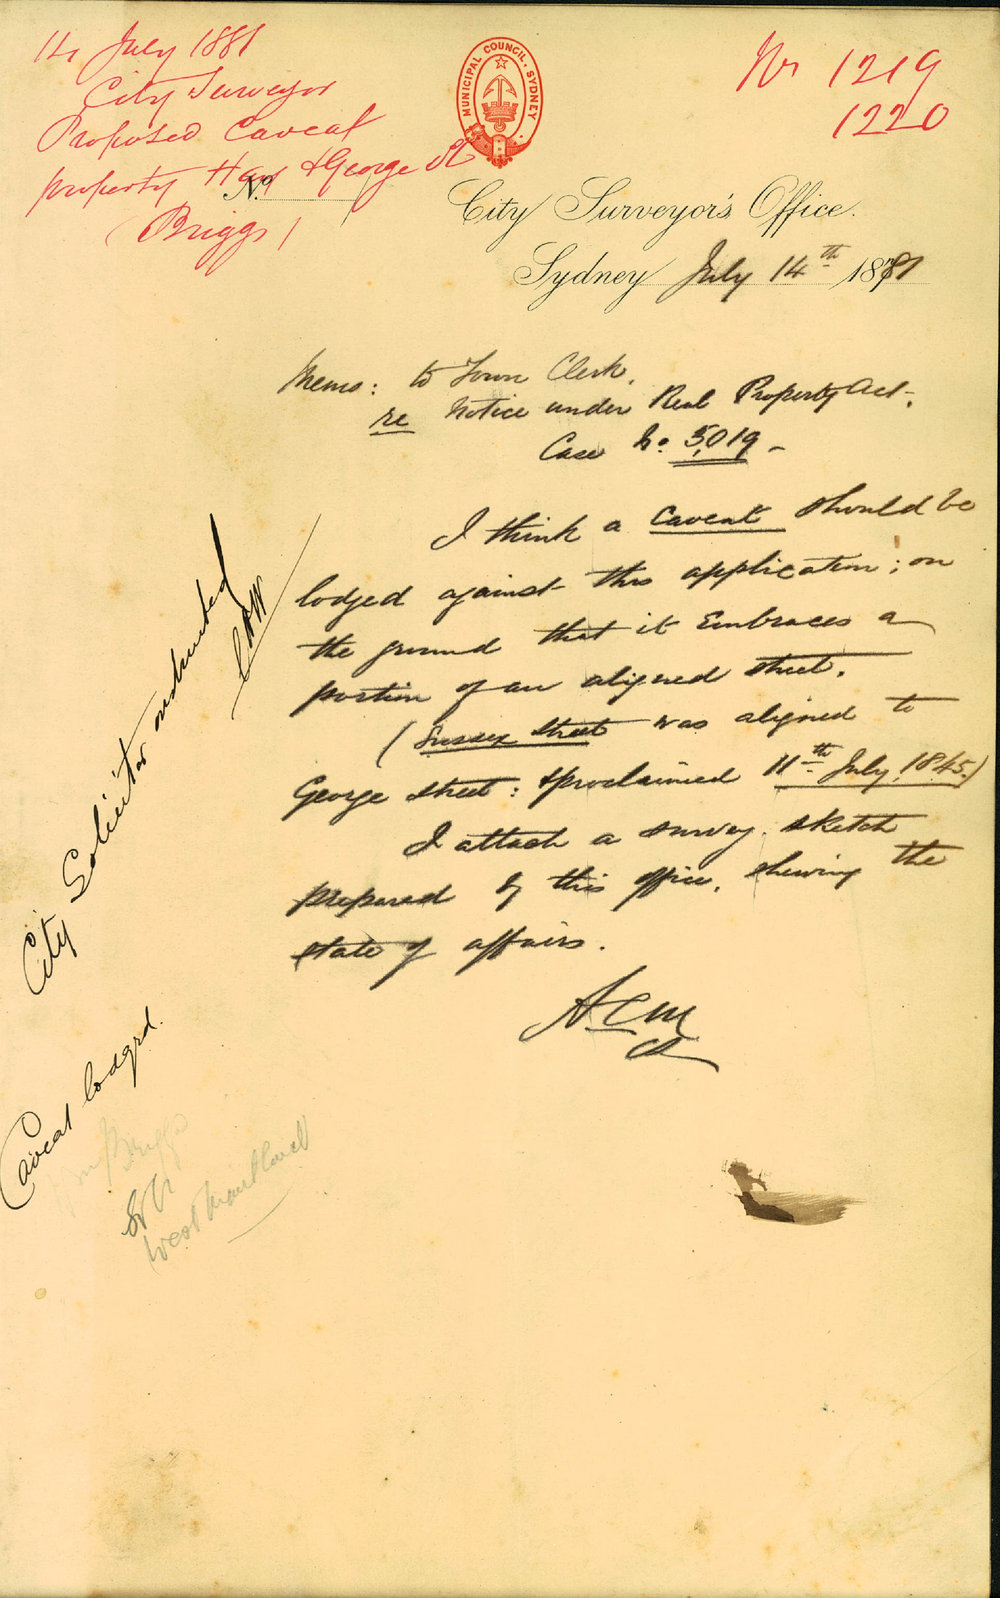 14 July 1881
City Surveyor
Proposed Caveat
property Hay & George St
(Briggs)
MUNICIPAL COUNCIL, SYDNEY
Nr 1219
1220
No.
City Surveyor's Office.
Sydney July 14th 1881
Memo: to Town Clerk.
re Notice under Real Property Act.
Case No. 5,019 -
I think a caveat should be
lodged against this application; on
the ground that it embraces a
portion of an aligned street.
(Sussex Street was aligned to
George Street: & proclaimed 11th July 1845.)
I attach a survey sketch
prepared by this office, shewing the
state of affairs.
City Solicitor instructed
Caveat lodged.
Briggs
West Maitland